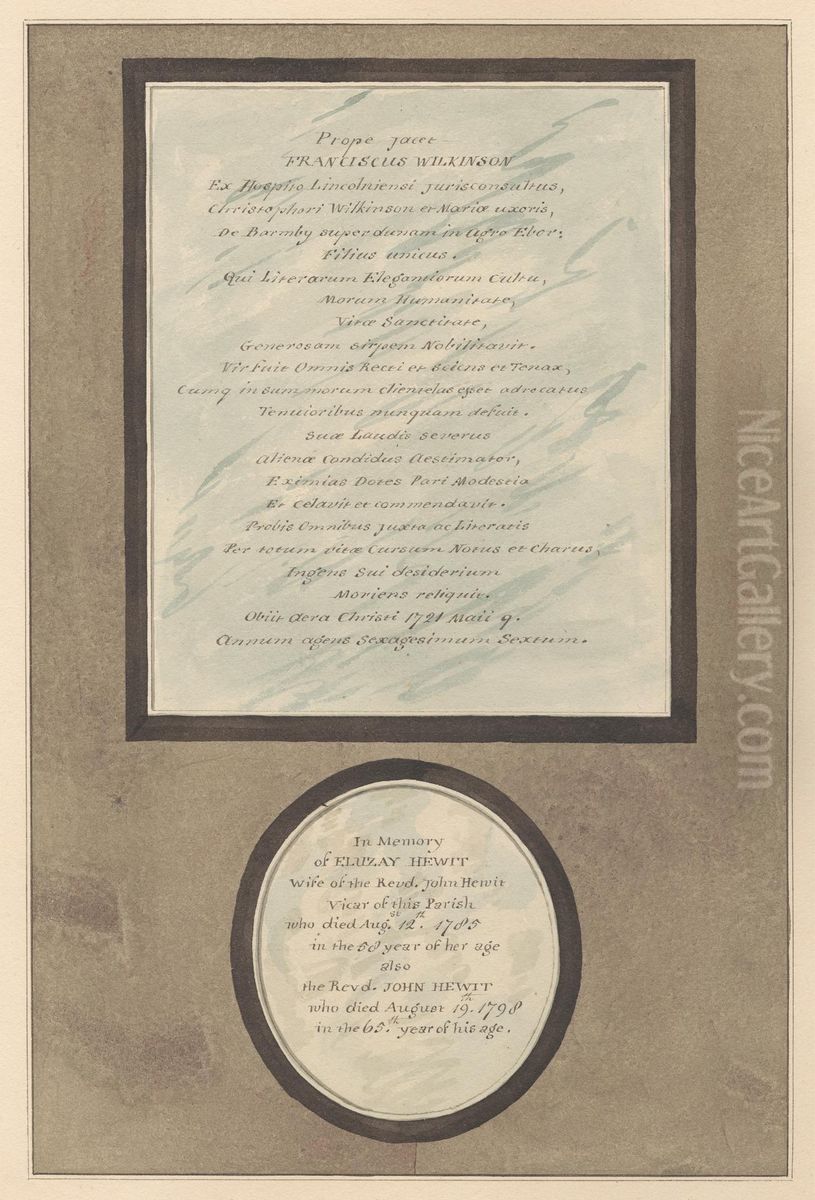 Prope jacet
FRANCISCUS WILKINSON
Ex Hospitio Lincolniensi jurisconsultus,
Christophori Wilkinson et Mariæ uxoris,
De Barmby super dunam in Agro Ebor:
Filius unicus.
Qui Literarum Elegantiorum Cultu,
Morum Humanitate,
Vitæ Sanctitate,
Generosam stirpem Nobilitavit.
Vir fuit Omnis Recti et sciens et Tenax,
Cumq in summorum clientelas esset advocatus
Tenuioribus nunquam defuit.
Suæ Laudis severus
Alienæ Candidus Aestimator,
Eximias Dotes Pari Modestia
Et Celavit et commendavit.
Probis Omnibus juxta ac Literatis
Per totum vitæ Cursum Notus et Charus,
Ingens Sui desiderium
Moriens reliquit.
Obiit Aera Christi 1721 Maii 9.
Annum agens Sexagesimum Sextum.
In Memory
of ELUZAY HEWIT
Wife of the Revd. John Hewit
Vicar of this Parish
who died Augst. 12th. 1785
in the 58 year of her age
also
the Revd. JOHN HEWIT
who died August 19th. 1798
in the 65th. year of his age.
NiceArtGallery.com